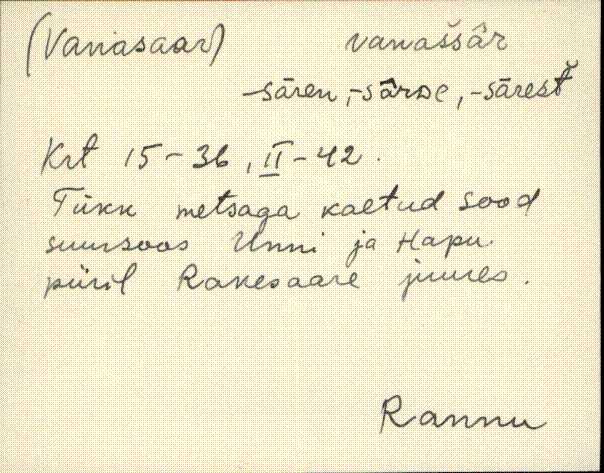 (Vanasaar) vanaššâr
-sären, -särDe, -säresť
Krt 15-36, II-42.
Tükk metsaga kaetud sood
suursoos Unni ja Hapu
piiril Rakesaare juures.
Rannu